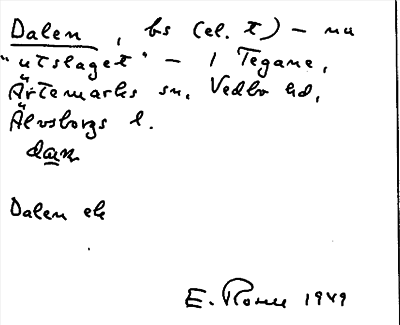 Dalen, bs (el. t) – nu
"utslaget" – i Tegane,
Ärtemarks sn, Vedbo hd,
Älvsborgs l.
dan
Dalen ek
E. Rosell 1949